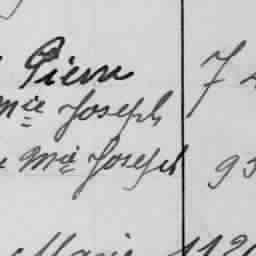 Pierre 7
Mie Joseph
Mie Joseph 93
Marie 112